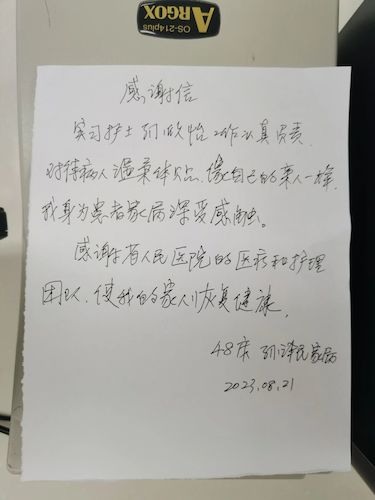 OS-214plus
ARGOX
感谢信
实习护士孙欣怡工作认真负责,
对待病人温柔体贴、像自己的亲人一样,
我身为患者家属深受感触。
感谢省人民医院的医疗和护理
团队、使我的家人恢复健康。
48床 孙泽民家属
2023.08.21